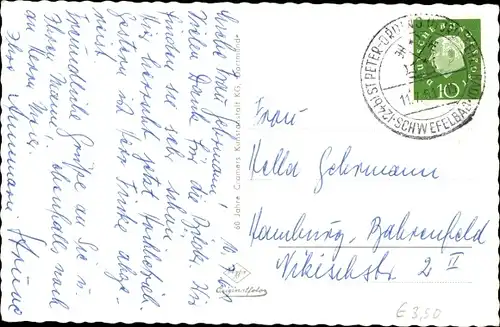 Liebe Frau Gehrmann!
Vielen Dank für die Bilder. Wir
finden sie sehr schön.
Hier herrscht jetzt Hochbetrieb.
Gestern ist Herr Finke abge-
reist.
Freundliche Grüße an Sie u.
Ihren Mann, ebenfalls auch
an Herrn
Ihre
60 Jahre Cramers Kunstanstalt KG, Dortmund
Originalfoto
(24b) ST PETER-ORDING
SCHWEFELBAD
10
Frau
Hella Gehrmann
Hamburg-Bahrenfeld
Nikischstr. 2 II
€ 3,50